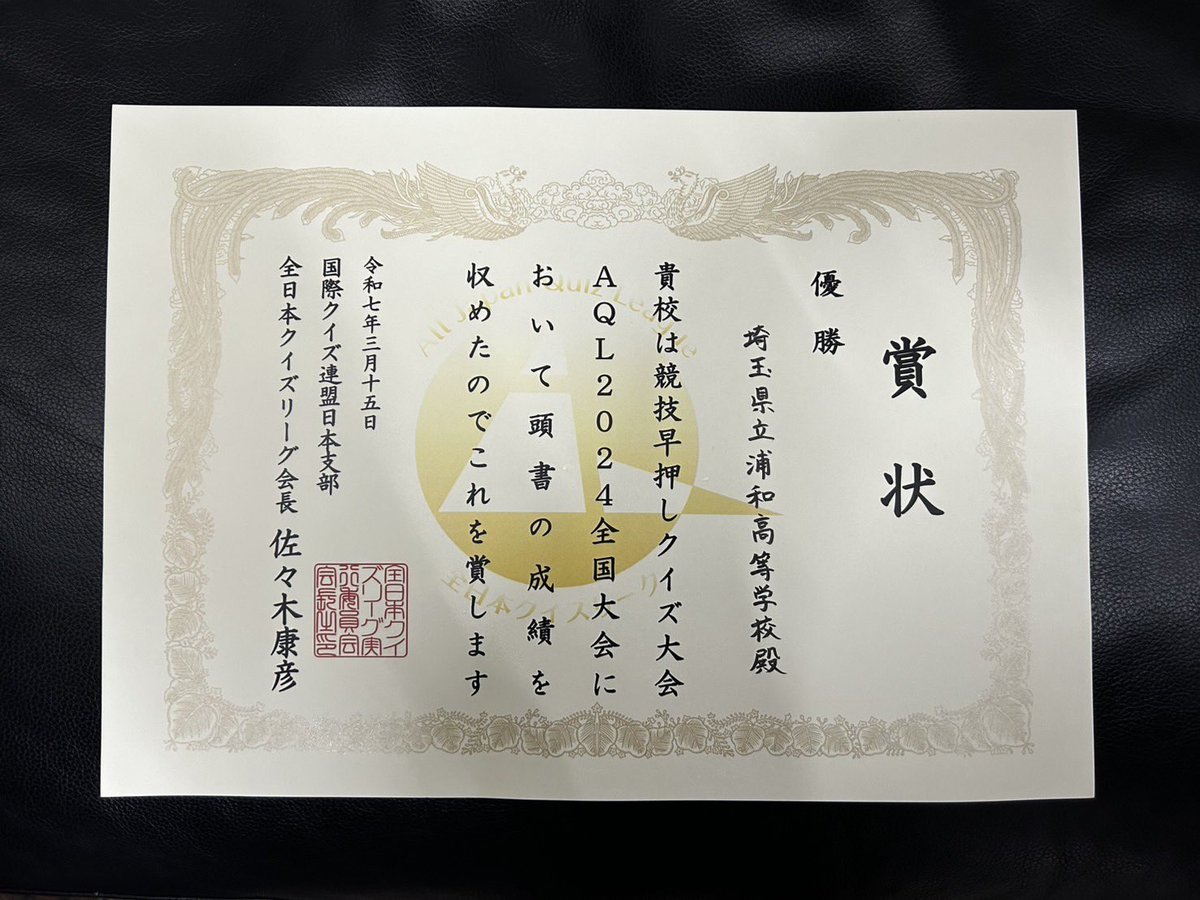 賞状
優勝
埼玉県立浦和高等学校殿
貴校は競技早押しクイズ大会
AQL2024全国大会に
おいて頭書の成績を
収めたのでこれを賞します
令和七年三月十五日
国際クイズ連盟日本支部
全日本クイズリーグ会長 佐々木康彦
全日本クイ
ズリーグ実
行委員会
会長之印
All Japan Quiz League
全日本クイズリーグ